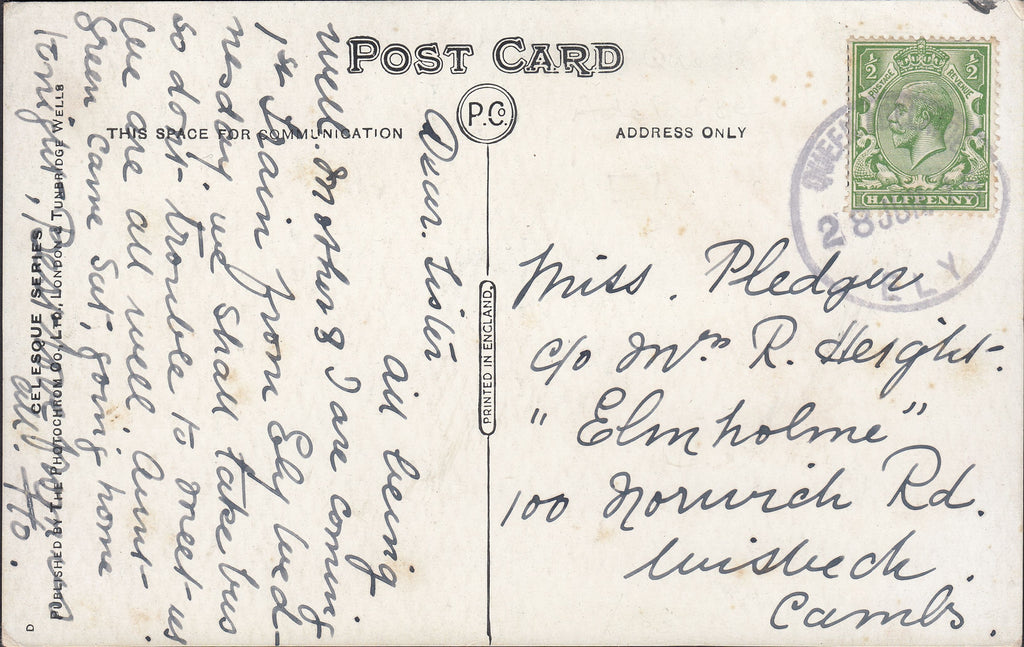 POST CARD
P.C.
THIS SPACE FOR COMMUNICATION
ADDRESS ONLY
½ ½
POSTAGE REVENUE
HALFPENNY
28 JU
ELY
Dear Sister
all being
well. Mother & I are coming
1st train from Ely Wed-
nesday, we shall take bus
so dont trouble to meet us
we are all well. Aunt
Green came Sat, going home
Tonight,
all.
PRINTED IN ENGLAND.
CELESQUE SERIES
PUBLISHED BY THE PHOTOCHROM CO., LTD., LONDON & TUNBRIDGE WELLS
D
Miss. Pledger
c/o Mrs R. Height.
"Elmholme"
100 Norwich Rd.
Wisbech.
Cambs.